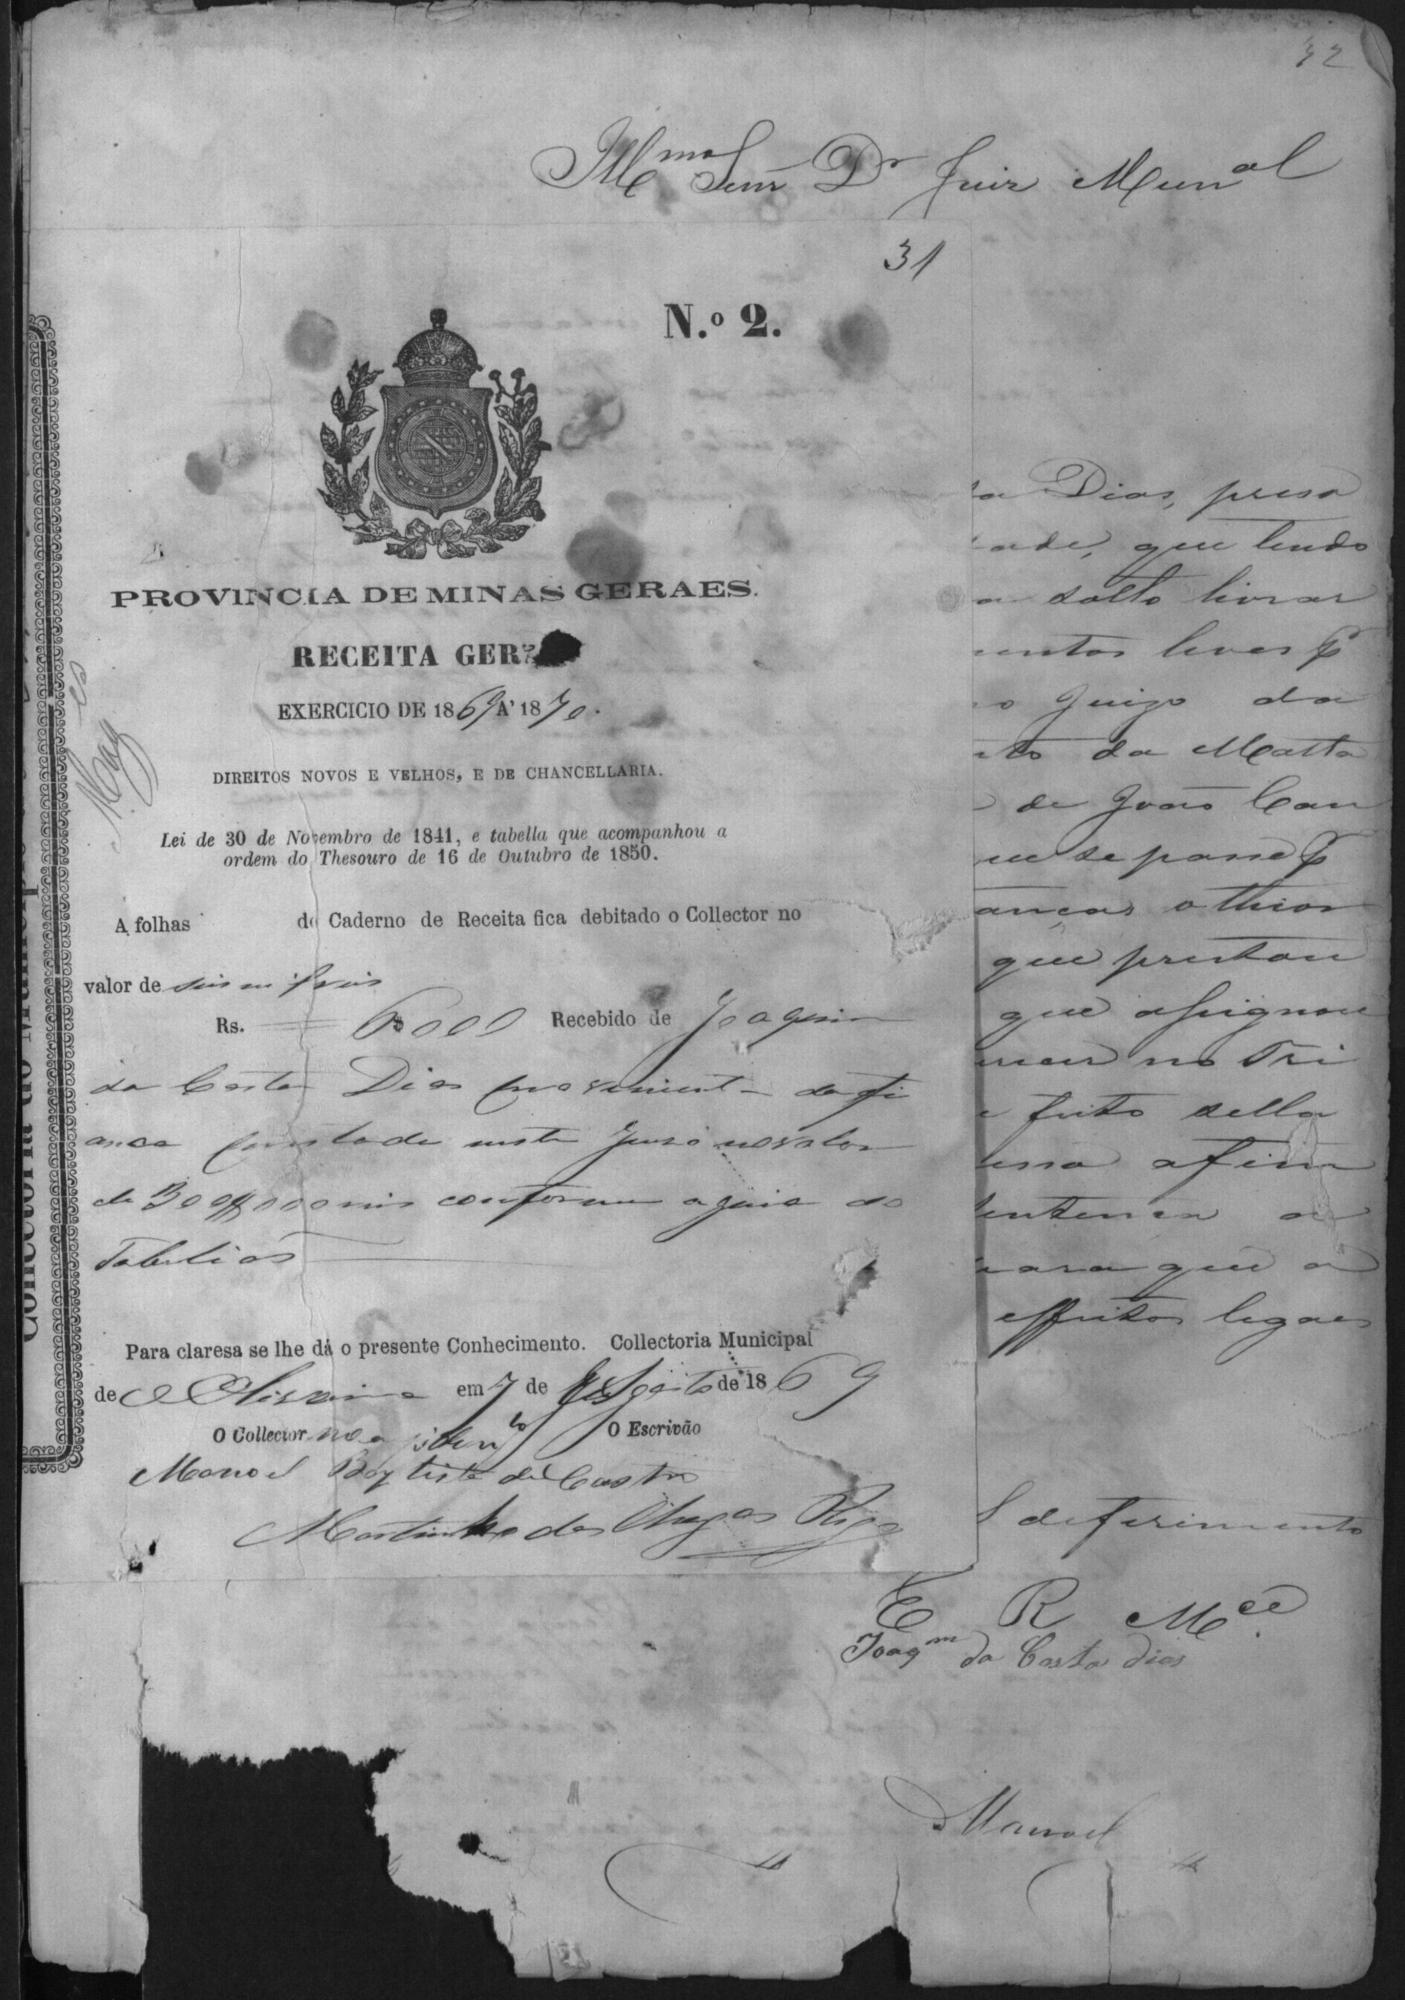 32
Illmo Senr Dr Juiz Munal
31
N.o 2.
PROVINCIA DE MINAS GERAES.
RECEITA GER
EXERCICIO DE 1869 A' 1870.
DIREITOS NOVOS E VELHOS, E DE CHANCELLARIA.
Lei de 30 de Novembro de 1841, e tabella que acompanhou a
ordem do Thesouro de 16 de Outubro de 1850.
A folhas do Caderno de Receita fica debitado o Collector no
valor de seis mil reis
Rs. 6$000 Recebido de Joaquim
da Costa Dias proveniente da fi
ança prestada neste Juizo no valor
de 300$000 reis conforme a guia do
Tabelião
Para claresa se lhe dá o presente Conhecimento. Collectoria Municipal
de Oliveira em 7 de Agosto de 1869
O Collector O Escrivão
Manoel Baptista de Castro
Martinho das Chagas
Collectoria do Municipio
ta Dias, preso
dade, que tendo
solto livrar
mentos leves p
o Juizo da
da Matta
de João Can
que se passe p
anças o thior
que prestou
que assignou
no Tri
feito sella
afim
sentença
para que
effeitos legaes
deferimento
E R Mce
Joaqm da Costa dias
Manoel